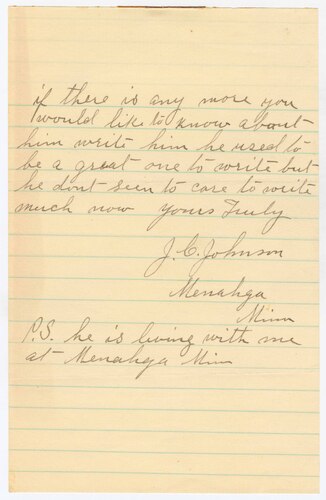 if there is any more you
would like to know about
him write him he used to
be a great one to write but
he dont seen to care to write
much now yours Truly
J. C. Johnson
Menahga
Minn
P.S. he is living with me
at Menahga Minn